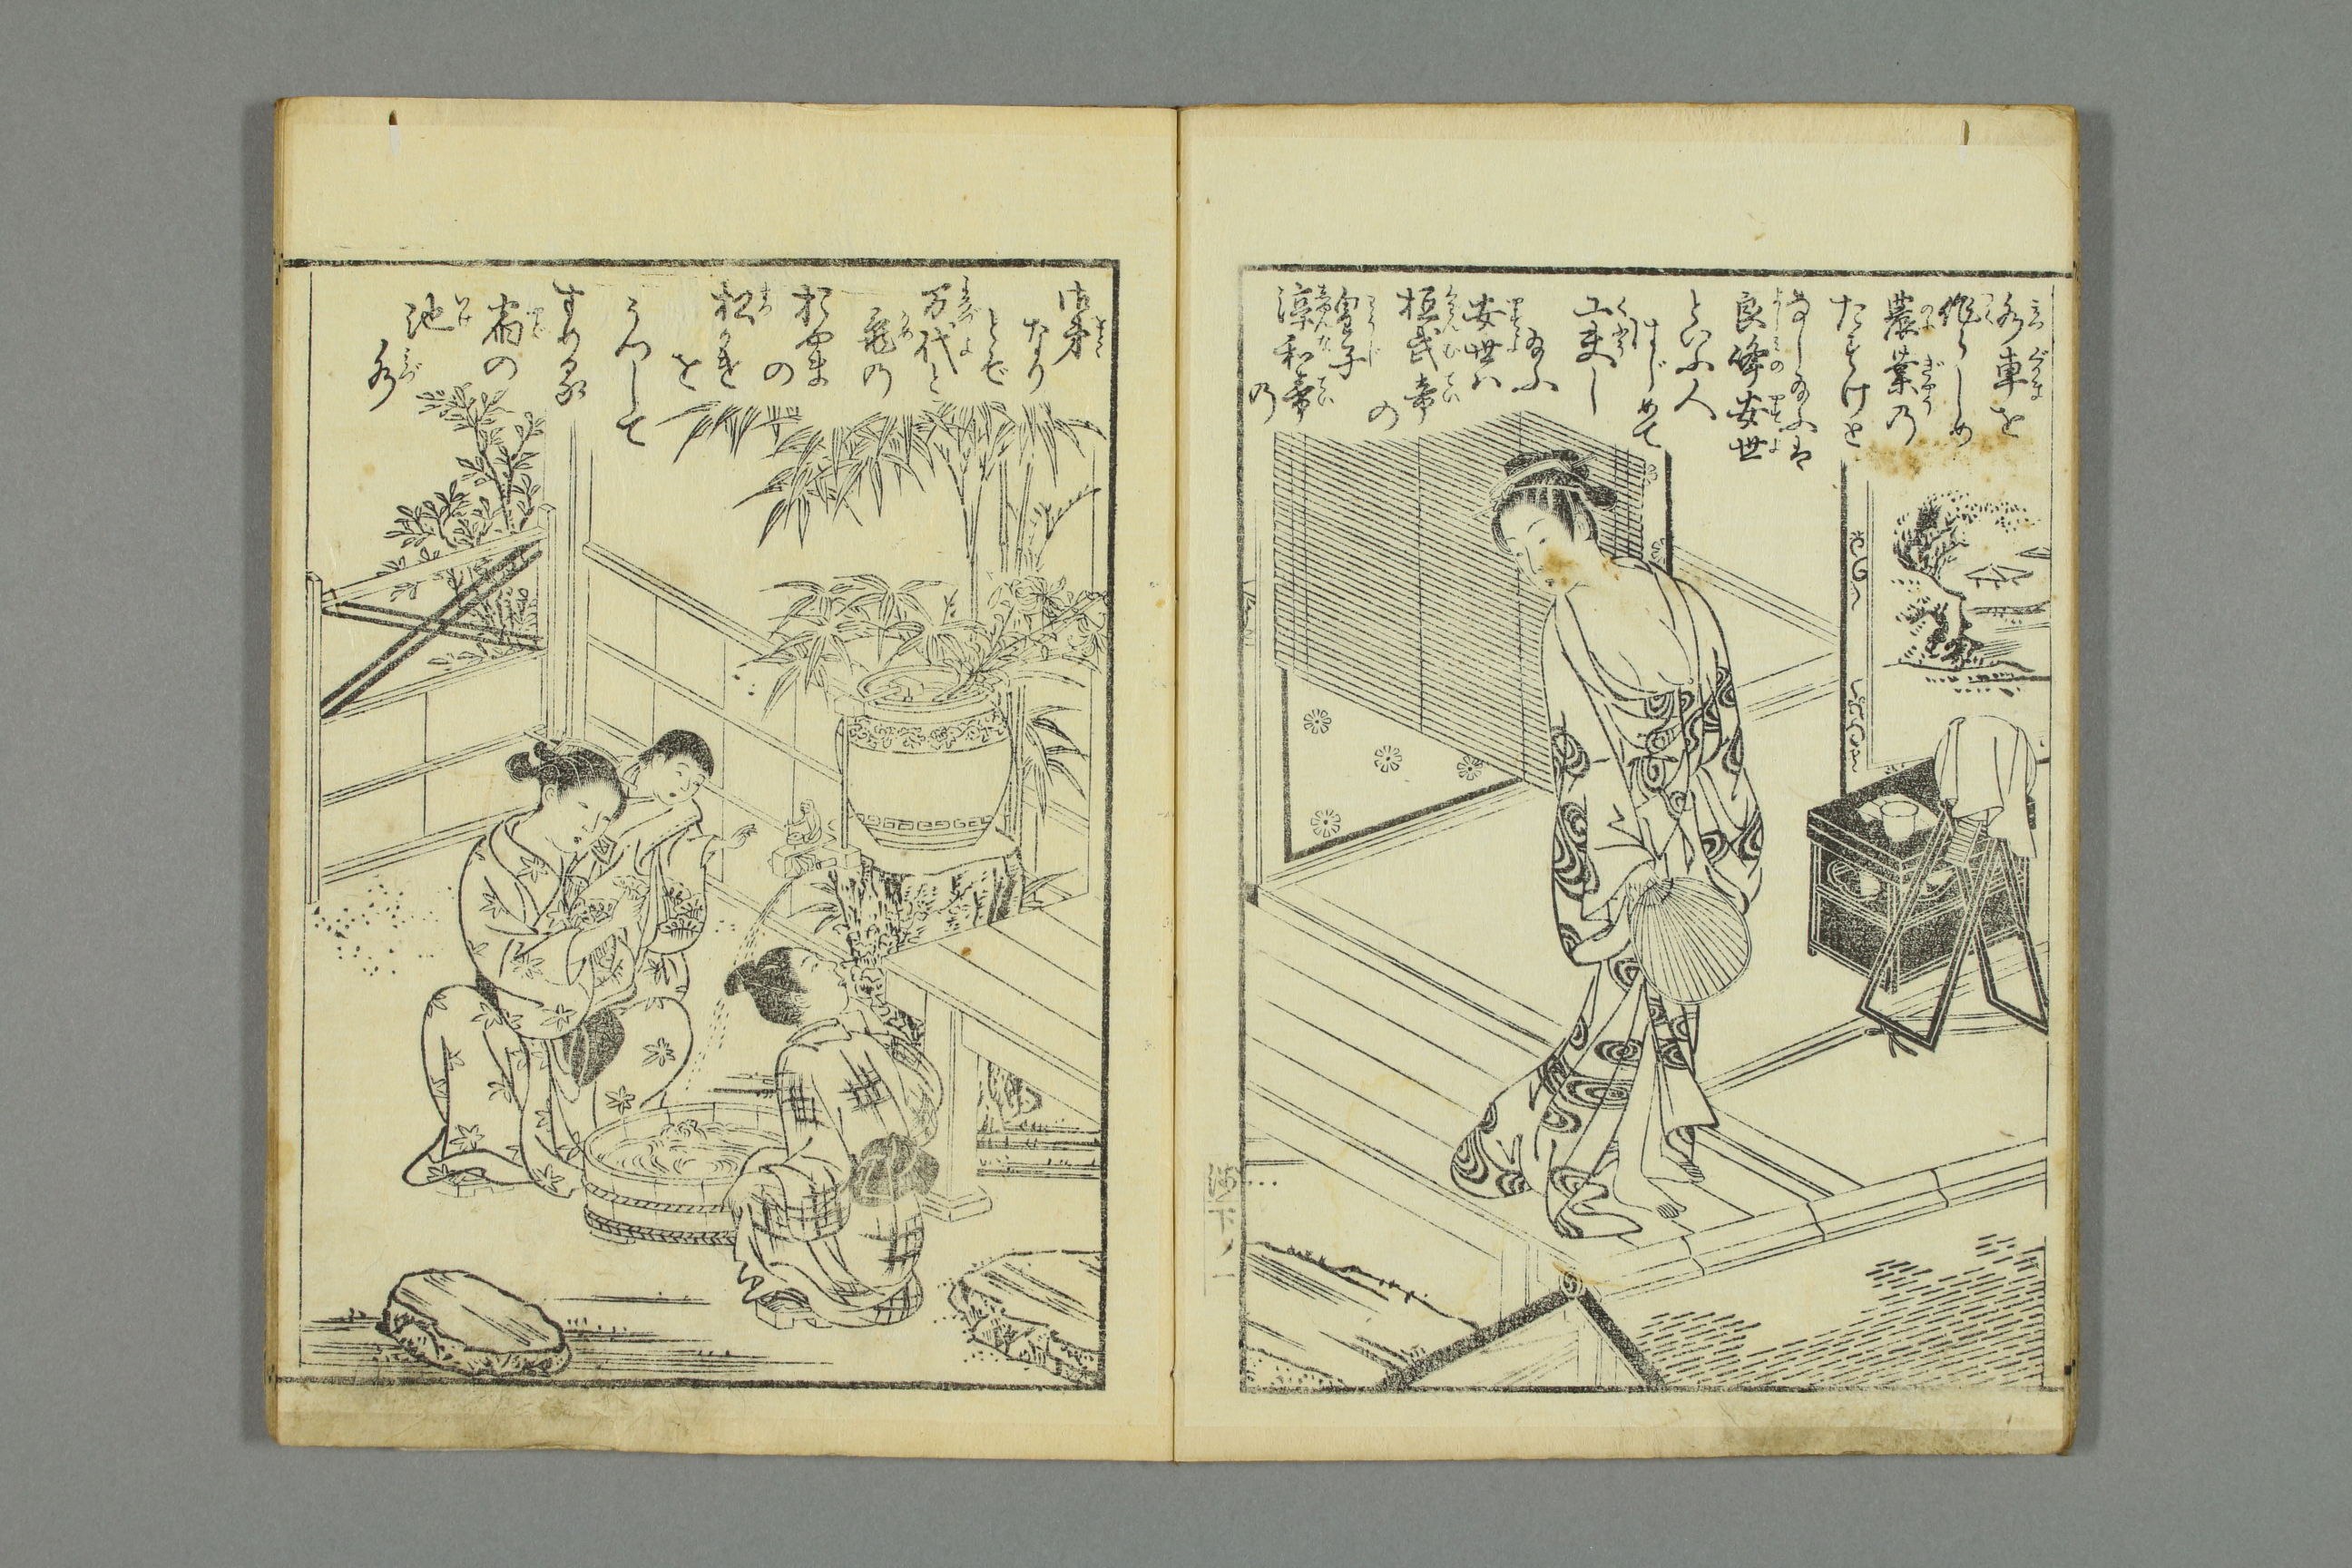 水車を
作らしめ
農業の
たすけと
なし給ふは
良峰安世
といふ人
はじめて
工夫し
給ふ
安世ハ
桓武帝の
皇子
淳和帝の
御弟
なり
とぞ
万代と
亀の
お山の
松かげを
うつして
すめる
宿の
池水